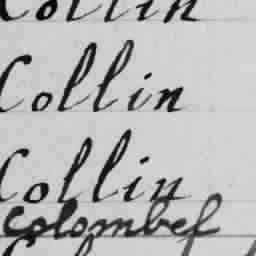 Collin
Collin
Collin
Colombef